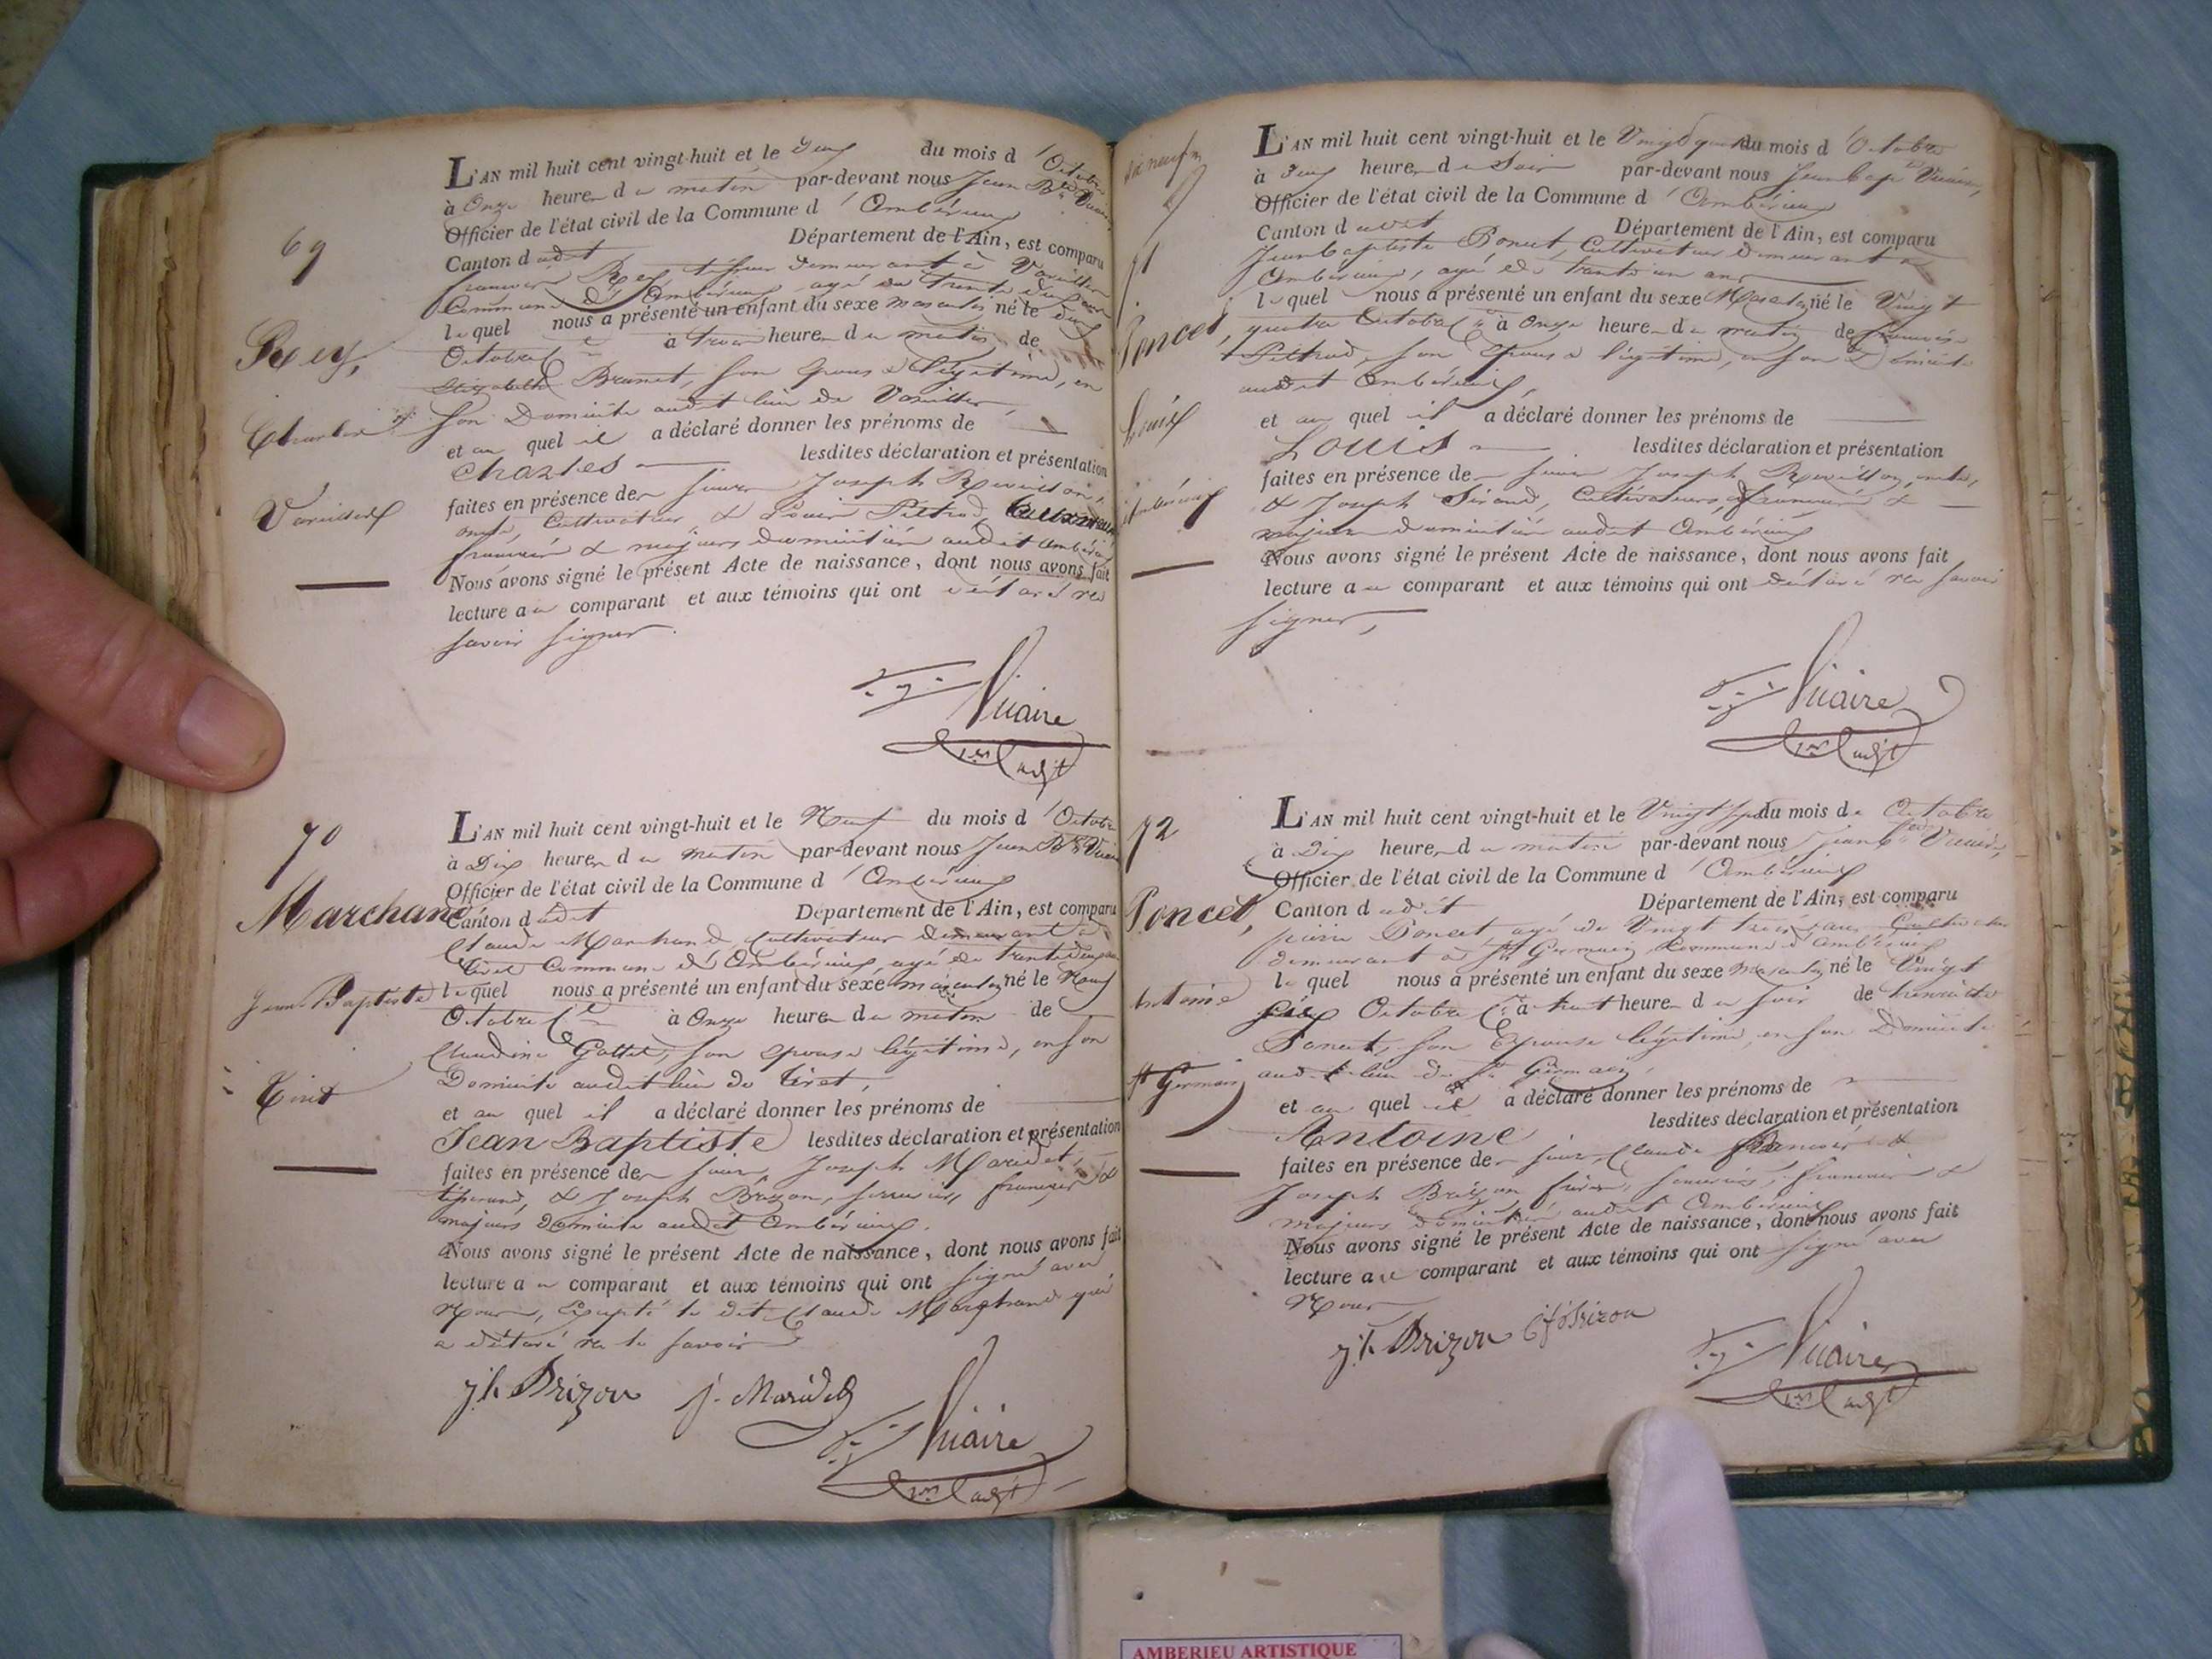 69
Rey,
Charles
Vareilles
L'AN mil huit cent vingt-huit et le deux du mois d'Octobre
à Onze heures du matin par-devant nous Jean Bte Vicaire
Officier de l'état civil de la Commune d'Ambérieux
Canton dudit Département de l'Ain, est comparu
françois Rey demeurant à Vareilles
Commune d'Ambérieux agé de trente
lequel nous a présenté un enfant du sexe masculin né le deux
Octobre à trois heures du matin de
Elizabeth Brunet, son épouse légitime, en
son Domicile audit lieu de Vareilles,
et auquel il a déclaré donner les prénoms de
Charles lesdites déclaration et présentation
faites en présence des sieurs Joseph Révillon,
cultivateur & Louis Pittrad,
français & majeurs domiciliés audit Ambérieux
Nous avons signé le présent Acte de naissance, dont nous avons fait
lecture au comparant et aux témoins qui ont déclaré ne
savoir signer.
Vicaire
70
Marchand
Jean Baptiste
Tiret
L'AN mil huit cent vingt-huit et le Neuf du mois d'Octobre
à Dix heures du matin par-devant nous Jean Bte Vicaire
Officier de l'état civil de la Commune d'Ambérieux
Canton dudit Département de l'Ain, est comparu
Claude Marchand, Cultivateur demeurant à
Tiret Commune d'Ambérieux, agé de trente deux ans
lequel nous a présenté un enfant du sexe masculin né le Neuf
Octobre à Onze heures du matin de
Claudine Gottet, son épouse légitime, en son
Domicile audit lieu de Tiret,
et auquel il a déclaré donner les prénoms de
Jean Baptiste lesdites déclaration et présentation
faites en présence des sieurs Joseph Maridet,
tisserand, & Joseph Brizon, serrurier, français &
majeurs Domiciliés audit Ambérieux.
Nous avons signé le présent Acte de naissance, dont nous avons fait
lecture au comparant et aux témoins qui ont signé avec
Nous, Excepté le dit Claude Marchand qui
a déclaré ne le savoir
jh Brizon j. Maridet
Vicaire
71
Poncet,
Louis
Ambérieux
L'AN mil huit cent vingt-huit et le Vingt quatre du mois d'Octobre
à deux heures du Soir par-devant nous Jean Bapte Vicaire,
Officier de l'état civil de la Commune d'Ambérieux
Canton dudit Département de l'Ain, est comparu
Jean baptiste Poncet, Cultivateur demeurant à
Ambérieux, agé de trente un ans
lequel nous a présenté un enfant du sexe Masculin né le Vingt
quatre Octobre à Onze heures du matin de françoise
Pittrad, son épouse légitime, en son Domicile
audit Ambérieux,
et auquel il a déclaré donner les prénoms de
Louis lesdites déclaration et présentation
faites en présence des sieurs Joseph Révillon,
& Joseph Sirand, Cultivateurs, français &
majeurs domiciliés audit Ambérieux
Nous avons signé le présent Acte de naissance, dont nous avons fait
lecture au comparant et aux témoins qui ont déclaré ne savoir
signer,
Vicaire
72
Poncet,
Antoine
St Germain
L'AN mil huit cent vingt-huit et le Vingt sept du mois de Octobre
à Dix heures du matin par-devant nous Jean Bte Vicaire,
Officier de l'état civil de la Commune d'Ambérieux
Canton dudit Département de l'Ain, est comparu
pierre Poncet agé de Vingt trois ans Cultivateur
demeurant à St Germain, Commune d'Ambérieux
lequel nous a présenté un enfant du sexe masculin né le Vingt
six Octobre à huit heures du soir de henriette
Poncet, son Epouse légitime, en son Domicile
audit lieu de St Germain,
et auquel il a déclaré donner les prénoms de
Antoine lesdites déclaration et présentation
faites en présence des sieurs Claude françois &
Joseph Brizon frères, serruriers, français &
majeurs domiciliés audit Ambérieux
Nous avons signé le présent Acte de naissance, dont nous avons fait
lecture au comparant et aux témoins qui ont signé avec
Nous
jh Brizon Cf Brizon
Vicaire
AMBERIEU ARTISTIQUE